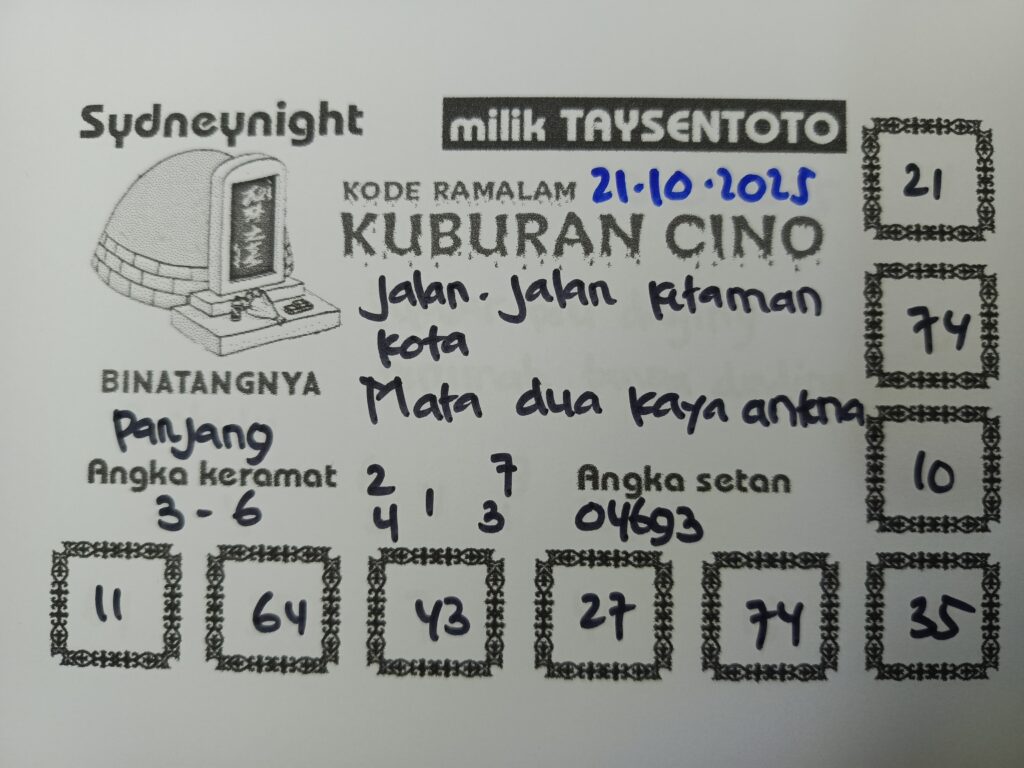 Sydneynight
milik TAYSENTOTO
KODE RAMALAM 21.10.2025
KUBURAN CINO
Jalan. Jalan ketaman
kota
Mata dua kaya antena
BINATANGNYA
Panjang
Angka keramat
3 - 6
2 7
4 1 3
Angka setan
04693
21
74
10
11 64 43 27 74 35